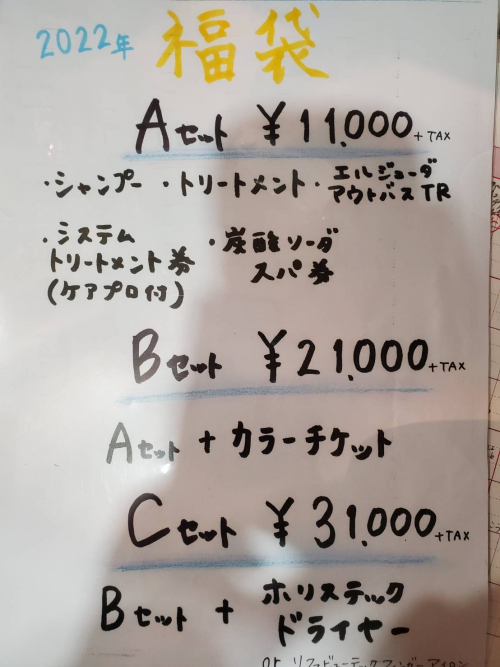 2022年 福袋
Aセット ¥11.000+TAX
・シャンプー ・トリートメント ・エルジューダ
アウトバスTR
・システム
トリートメント券
(ケアプロ付)
・炭酸ソーダ
スパ券
Bセット ¥21.000+TAX
Aセット + カラーチケット
Cセット ¥31.000+TAX
Bセット + ホリステック
ドライヤー
or リファビューテック フィンガーアイロン